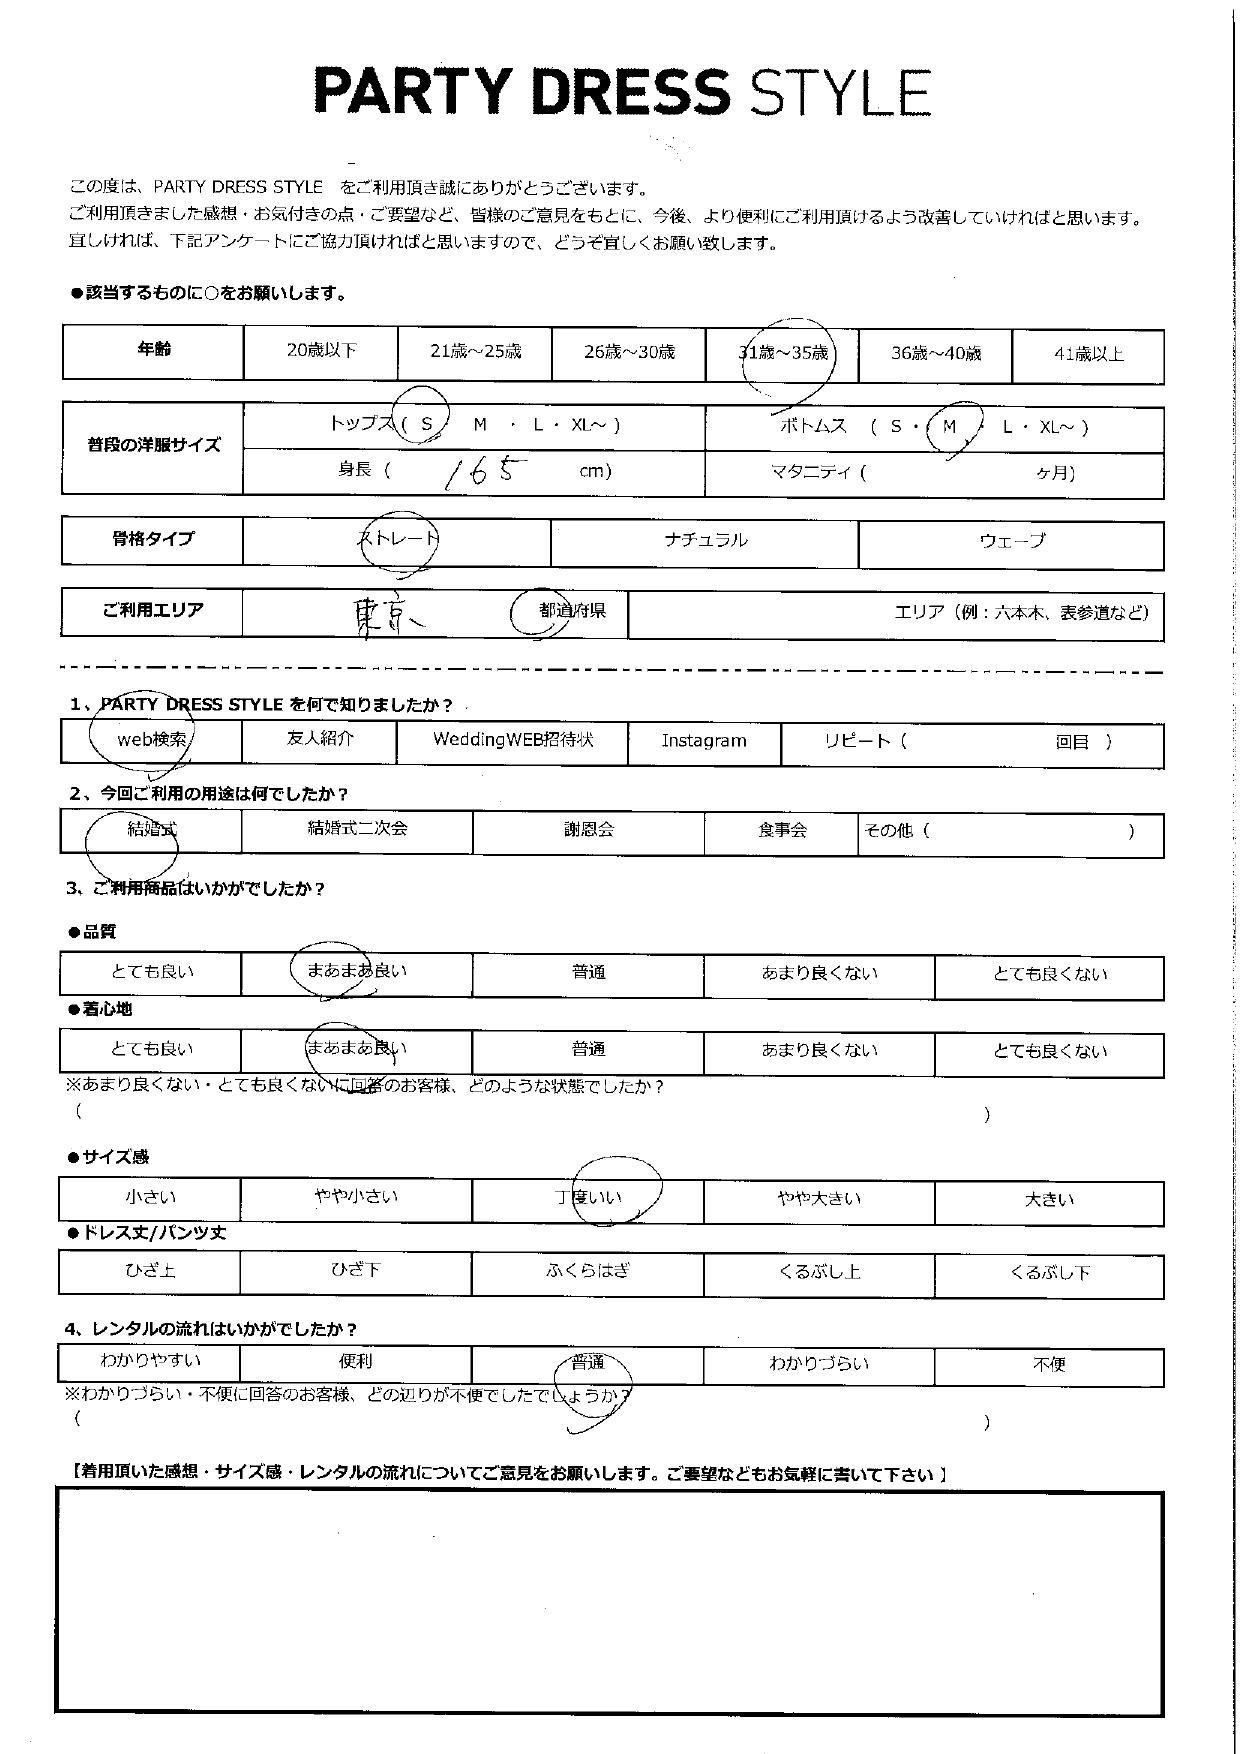 PARTY DRESS STYLE
この度は、PARTY DRESS STYLE をご利用頂き誠にありがとうございます。
ご利用頂きました感想・お気付きの点・ご要望など、皆様のご意見をもとに、今後、より便利にご利用頂けるよう改善していければと思います。
宜しければ、下記アンケートにご協力頂ければと思いますので、どうぞ宜しくお願い致します。
●該当するものに○をお願いします。
年齢 20歳以下 21歳～25歳 26歳～30歳 31歳～35歳 36歳～40歳 41歳以上
普段の洋服サイズ トップス( S M ・ L ・ XL～ ) ボトムス ( S ・ M ・ L ・ XL～ )
身長 ( 165 cm) マタニティ ( ヶ月)
骨格タイプ ストレート ナチュラル ウェーブ
ご利用エリア 東京 都道府県 エリア（例：六本木、表参道など）
1、PARTY DRESS STYLE を何で知りましたか？
web検索 友人紹介 WeddingWEB招待状 Instagram リピート ( 回目 )
2、今回ご利用の用途は何でしたか？
結婚式 結婚式二次会 謝恩会 食事会 その他 ( )
3、ご利用商品はいかがでしたか？
●品質
とても良い まあまあ良い 普通 あまり良くない とても良くない
●着心地
とても良い まあまあ良い 普通 あまり良くない とても良くない
※あまり良くない・とても良くないに回答のお客様、どのような状態でしたか？
( )
●サイズ感
小さい やや小さい 丁度いい やや大きい 大きい
●ドレス丈/パンツ丈
ひざ上 ひざ下 ふくらはぎ くるぶし上 くるぶし下
4、レンタルの流れはいかがでしたか？
わかりやすい 便利 普通 わかりづらい 不便
※わかりづらい・不便に回答のお客様、どの辺りが不便でしたでしょうか？
( )
【着用頂いた感想・サイズ感・レンタルの流れについてご意見をお願いします。ご要望などもお気軽に書いて下さい 】